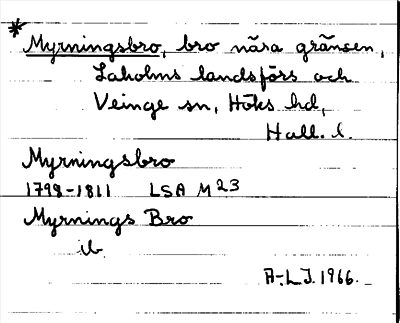 * Myrningsbro, bro nära gränsen,
Laholms landsförs och
Veinge sn, Höks hd,
Hall. l.
Myrningsbro
1798-1811 LSA M 23
Myrnings Bro
ib.
A-L J. 1966.